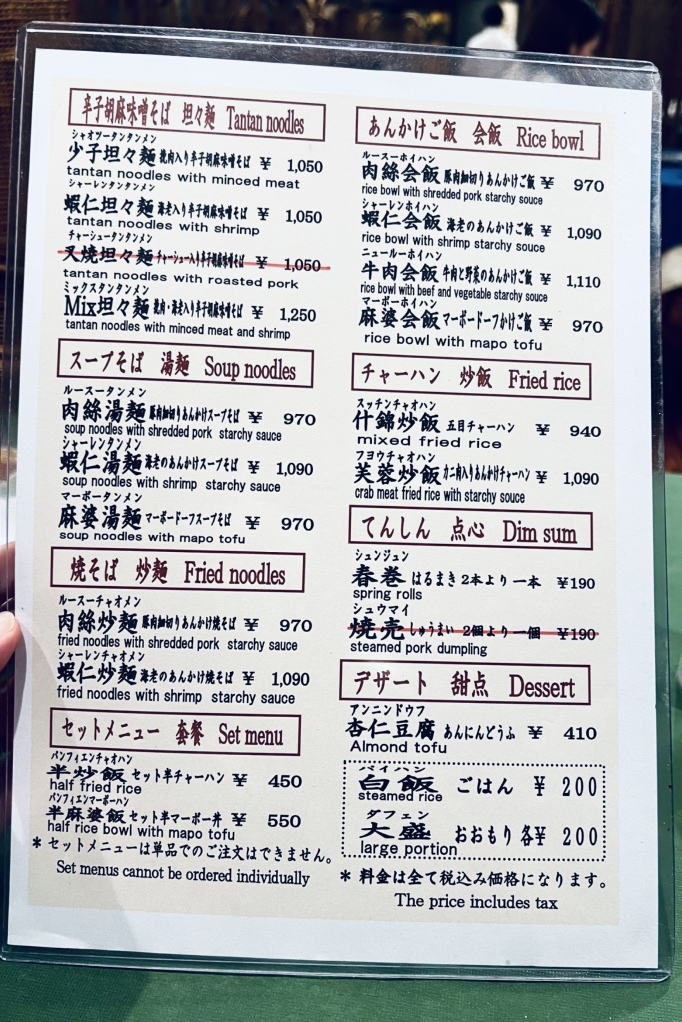 辛子胡麻味噌そば 坦々麺 Tantan noodles
シャオツータンタンメン
少子坦々麺 挽肉入り辛子胡麻味噌そば ¥ 1,050
tantan noodles with minced meat
シャーレンタンタンメン
蝦仁坦々麺 海老入り辛子胡麻味噌そば ¥ 1,050
tantan noodles with shrimp
チャーシュータンタンメン
叉焼坦々麺 チャーシュー入り辛子胡麻味噌そば ¥ 1,050
tantan noodles with roasted pork
ミックスタンタンメン
Mix坦々麺 挽肉・海老入り辛子胡麻味噌そば ¥ 1,250
tantan noodles with minced meat and shrimp
スープそば 湯麺 Soup noodles
ルースータンメン
肉絲湯麺 豚肉細切りあんかけスープそば ¥ 970
soup noodles with shredded pork starchy sauce
シャーレンタンメン
蝦仁湯麺 海老のあんかけスープそば ¥ 1,090
soup noodles with shrimp starchy sauce
マーボータンメン
麻婆湯麺 マーボードーフスープそば ¥ 970
soup noodles with mapo tofu
焼そば 炒麺 Fried noodles
ルースーチャオメン
肉絲炒麺 豚肉細切りあんかけ焼そば ¥ 970
fried noodles with shredded pork starchy sauce
シャーレンチャオメン
蝦仁炒麺 海老のあんかけ焼そば ¥ 1,090
fried noodles with shrimp starchy sauce
セットメニュー 套餐 Set menu
バンフィエンチャオハン
半炒飯 セット半チャーハン ¥ 450
half fried rice
バンフィエンマーボーハン
半麻婆飯 セット半マーボー丼 ¥ 550
half rice bowl with mapo tofu
* セットメニューは単品でのご注文はできません。
Set menus cannot be ordered individually
あんかけご飯 会飯 Rice bowl
ルースーホイハン
肉絲会飯 豚肉細切りあんかけご飯 ¥ 970
rice bowl with shredded pork starchy souce
シャーレンホイハン
蝦仁会飯 海老のあんかけご飯 ¥ 1,090
rice bowl with shrimp starchy souce
ニュールーホイハン
牛肉会飯 牛肉と野菜のあんかけご飯 ¥ 1,110
rice bowl with beef and vegetable starchy souce
マーボーホイハン
麻婆会飯 マーボードーフかけご飯 ¥ 970
rice bowl with mapo tofu
チャーハン 炒飯 Fried rice
スッチンチャオハン
什錦炒飯 五目チャーハン ¥ 940
mixed fried rice
フヨウチャオハン
芙蓉炒飯 カニ肉入りあんかけチャーハン ¥ 1,090
crab meat fried rice with starchy souce
てんしん 点心 Dim sum
シュンジュン
春巻 はるまき2本より一本 ¥190
spring rolls
シュウマイ
焼売 しゅうまい 2個より一個 ¥190
steamed pork dumpling
デザート 甜点 Dessert
アンニンドウフ
杏仁豆腐 あんにんどうふ ¥ 410
Almond tofu
バイハン
白飯 ごはん ¥ 200
steamed rice
ダフェン
大盛 おおもり 各¥ 200
large portion
* 料金は全て税込み価格になります。
The price includes tax